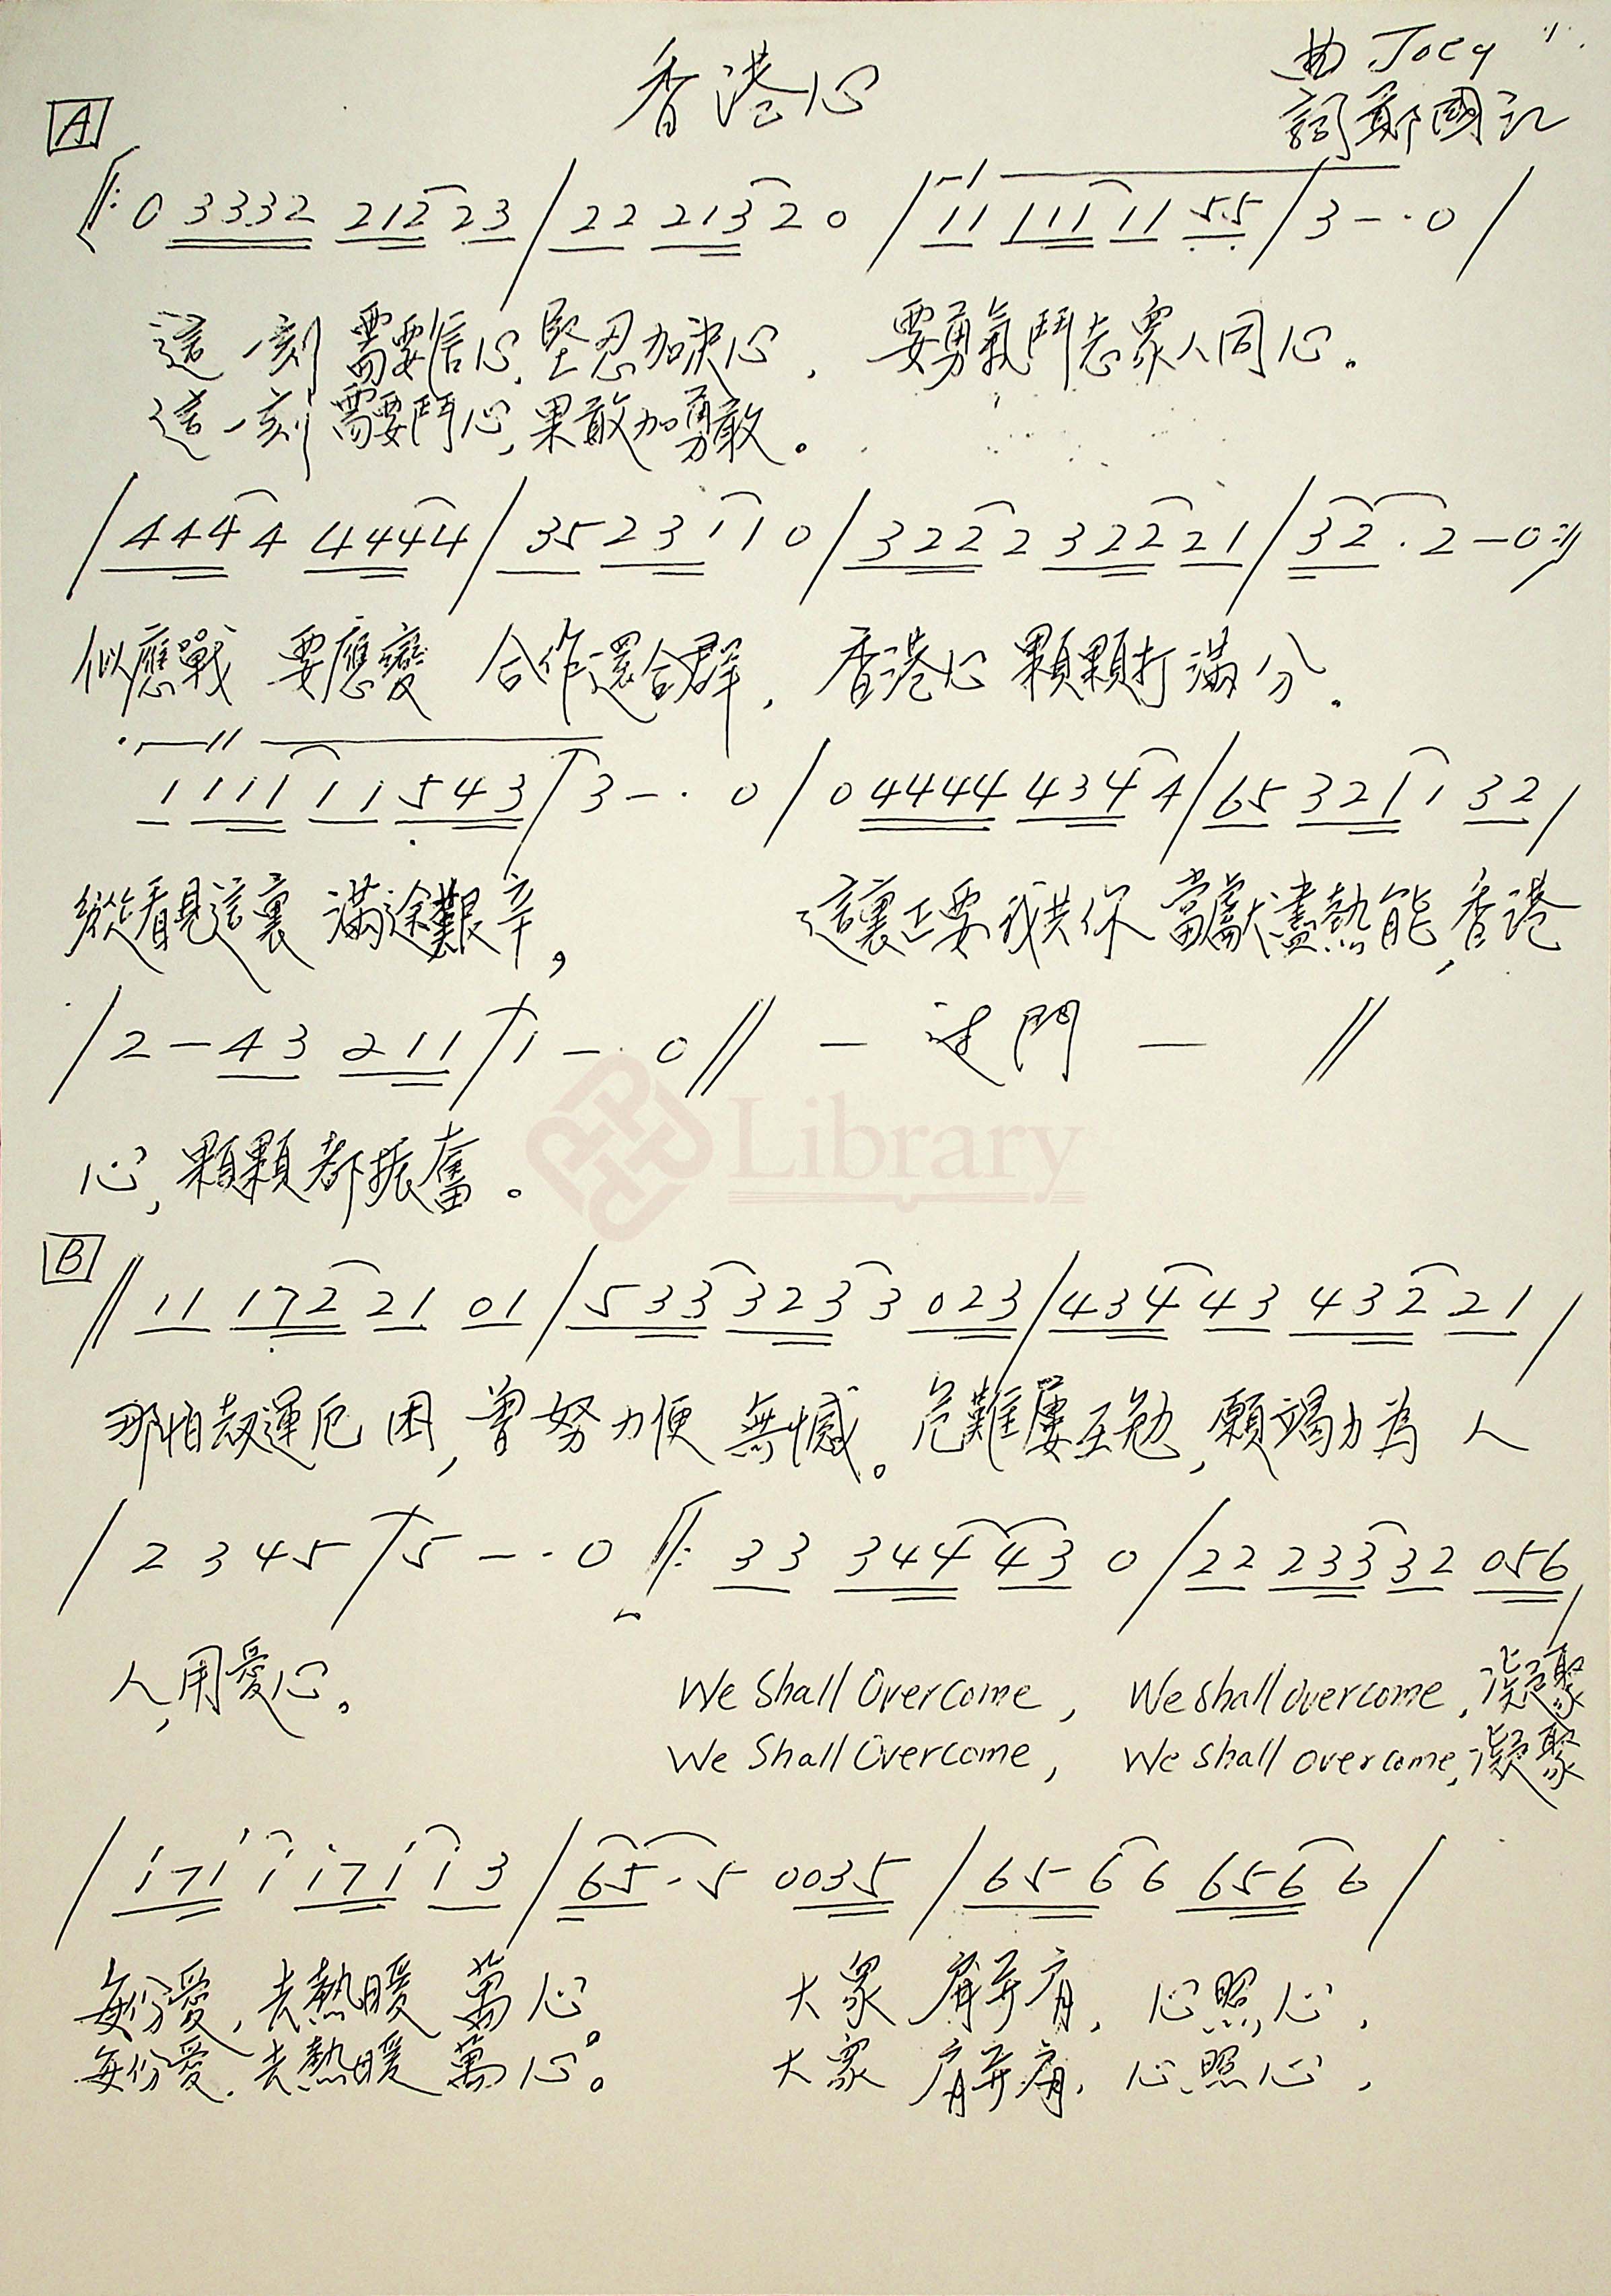 香港心
曲 Joey
詞 鄭國江
A
‖: 0 3332 212 23 / 22 2132 0 / 11 111 11 55 / 3 - · 0 /
這一刻 需要信心, 堅忍加決心, 要勇氣鬥志眾人同心。
這一刻 需要鬥心, 果敢加勇敢。
/ 444 4 4444 / 35 231 1 0 / 322 2 322 21 / 32 · 2 - 0 :‖
似應戰 要應變 合作還合群, 香港心 顆顆打滿分。
1 111 11 543 / 3 - · 0 / 0 4444 434 4 / 65 321 1 32 /
縱看見這裏 滿途艱辛, 這裏正要我共你 當獻盡熱能, 香港
/ 2 - 43 211 / 1 - · 0 // — 过門 — //
心, 顆顆都振奮。
Library
B
// 11 172 21 01 / 533 323 3 023 / 434 43 432 21 /
那怕 運厄困, 曾努力便無憾。危難屢互勉, 願竭力為人
/ 2 3 4 5 / 5 - · · 0 ‖: 33 344 43 0 / 22 233 32 056 /
人, 用愛心。 We Shall Overcome, We shall overcome, 凝聚
We Shall Overcome, We shall overcome, 凝聚
/ i7i i i7i i3 / 65 · 5 0035 / 656 6 656 6 /
每份愛, 去熱暖萬心。 大眾 肩并肩, 心照心,
每份愛, 去熱暖萬心。 大眾 肩并肩, 心照心,